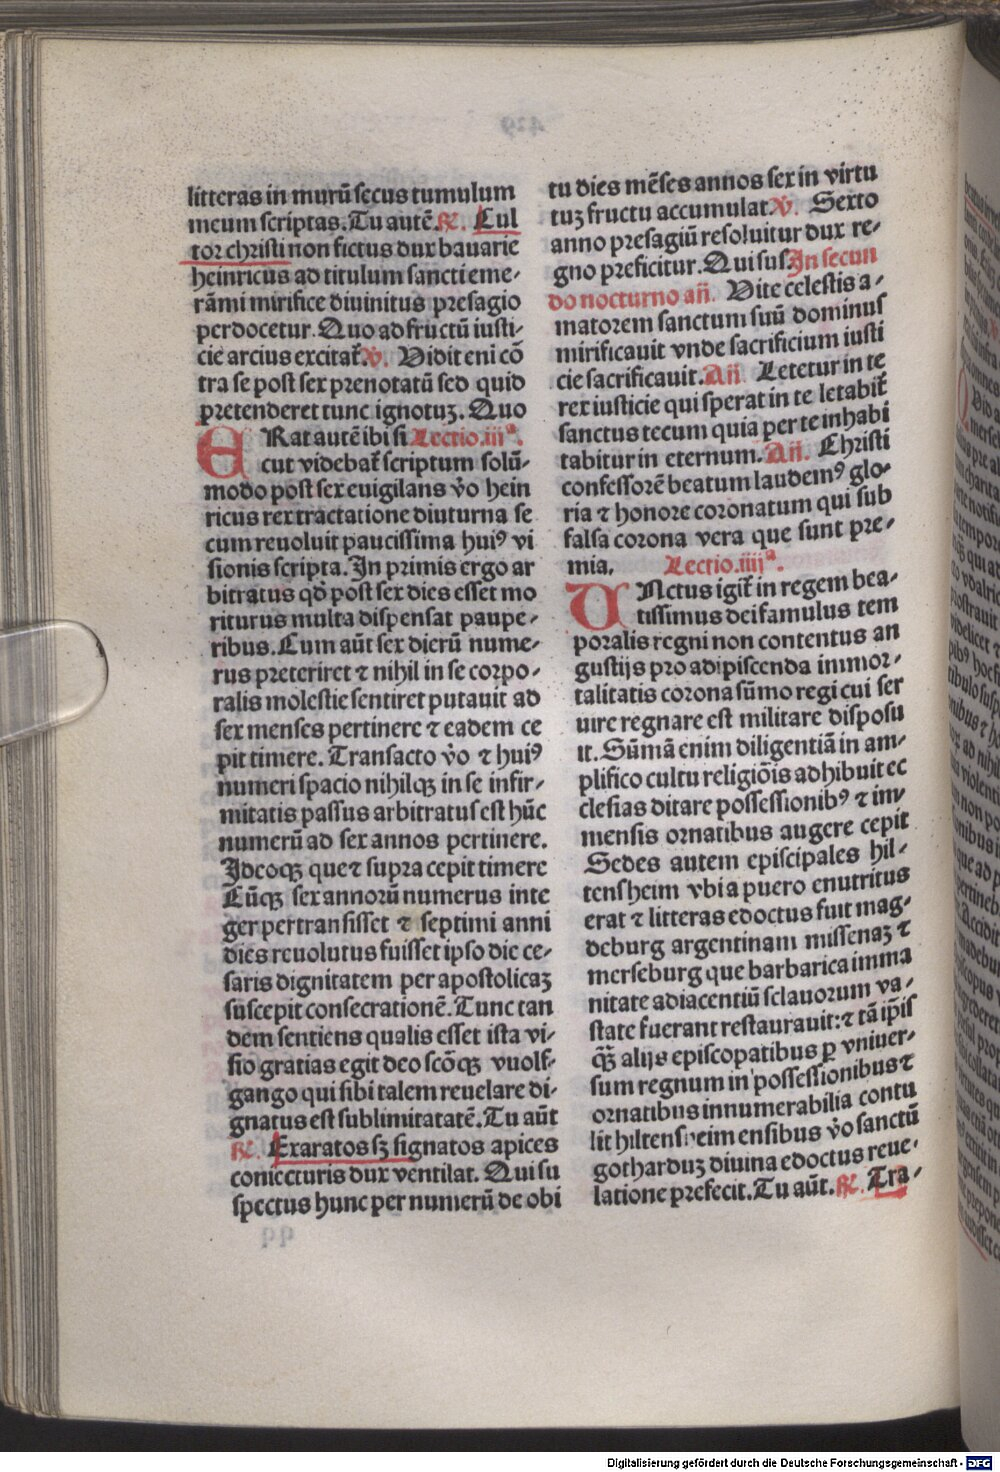 litteras in murū secus tumulum
meum scriptas. Tu autē. ℟. Cul
tor christi non fictus dux bauarie
heinricus ad titulum sancti eme-
rāmi mirifice diuinitus presagio
perdocetur. Quo ad fructū iusti-
cie arcius excitat̄. ℣. Vidit eni cō
tra se post sex prenotatū sed quid
pretenderet tunc ignotuȝ. Quo
ERat autē ibi si Lectio.iiiª.
cut videbat̄ scriptum solū-
modo post sex euigilans v̄o hein
ricus rex tractatione diuturna se
cum reuoluit paucissima huiꝰ vi
sionis scripta. In primis ergo ar
bitratus qd̄ post sex dies esset mo
riturus multa dispensat paupe-
ribus. Cum aūt sex dierū nume-
rus preteriret ⁊ nihil in se corpo-
ralis molestie sentiret putauit ad
sex menses pertinere ⁊ eadem ce
pit timere. Transacto v̄o ⁊ huiꝰ
numeri spacio nihilqȝ in se infir-
mitatis passus arbitratus est hūc
numerū ad sex annos pertinere.
Ideoqȝ que⁊ supra cepit timere
Cūqȝ sex annorū numerus inte
ger pertransisset ⁊ septimi anni
dies reuolutus fuisset ipso die ce-
saris dignitatem per apostolicaȝ
suscepit consecrationē. Tunc tan
dem sentiens qualis esset ista vi-
sio gratias egit deo scōqȝ vuolf-
gango qui sibi talem reuelare di-
gnatus est sublimitatatē. Tu aūt
℟. Exaratos sȝ signatos apices
coniecturis dux ventilat. Qui su
spectus hunc per numerū de obi
tu dies mēses annos sex in virtu
tuȝ fructu accumulat ℣. Sexto
anno presagiū resoluitur dux re-
gno preficitur. Qui sus In secun
do nocturno añ. Vite celestis a-
matorem sanctum suū dominus
mirificauit vnde sacrificium iusti
cie sacrificauit. Añ. Letetur in te
rex iusticie qui sperat in te letabit̄
sanctus tecum quia per te inhabi
tabitur in eternum. Añ. Christi
confessorē beatum laudemꝰ glo-
ria ⁊ honore coronatum qui sub
falsa corona vera que sunt pre-
mia. Lectio.iiijª.
UNctus igit̄ in regem bea-
tissimus dei famulus tem
poralis regni non contentus an
gustijs pro adipiscenda immor-
talitatis corona sūmo regi cui ser
uire regnare est militare disposu
it. Sūmā enim diligentiā in am-
plifico cultu religiōis adhibuit ec
clesias ditare possessionibꝰ ⁊ im-
mensis ornatibus augere cepit
Sedes autem episcipales hil-
tensheim vbi a puero enutritus
erat ⁊ litteras edoctus fuit mag-
deburg argentinam missenaȝ ⁊
merseburg que barbarica imma
nitate adiacentiū sclauorum va-
state fuerant restaurauit: ⁊ tā ip̄is
qȝ̄ alijs episcopatibus ꝑ vniuer-
sum regnum in possessionibus ⁊
ornatibus innumerabilia contu
lit hiltensheimensibus v̄o sanctū
gotharduȝ diuina edoctus reue-
latione prefecit. Tu aūt. ℟. Tra-
Digitalisierung gefördert durch die Deutsche Forschungsgemeinschaft - DFG